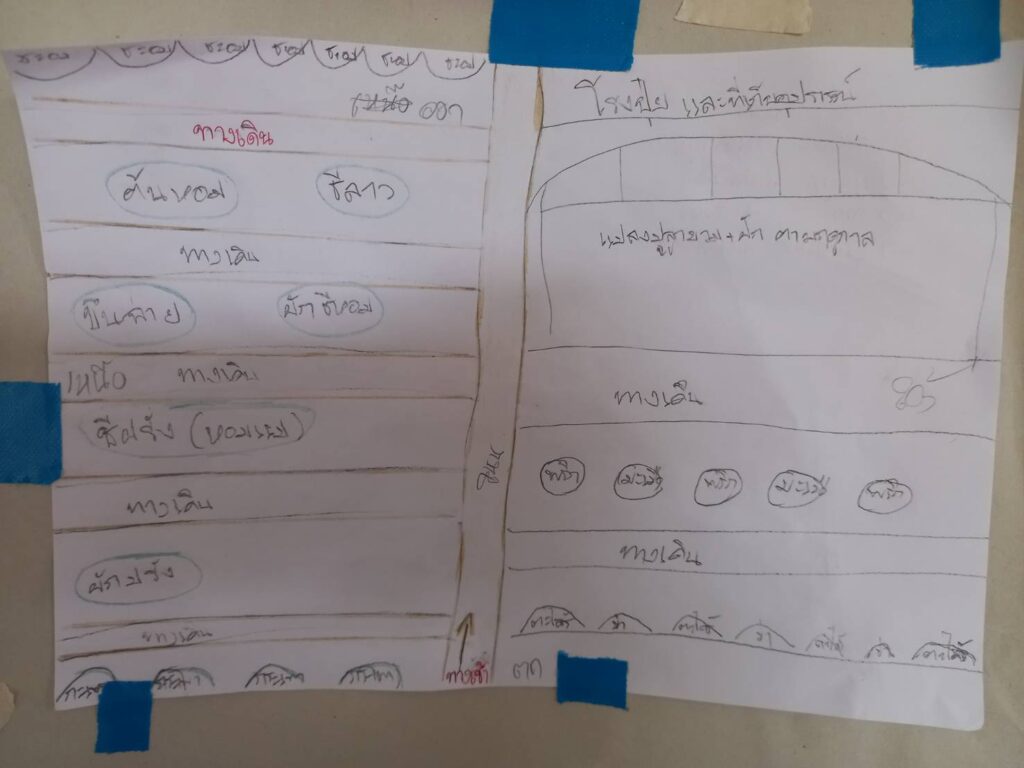 ชะอม ชะอม ชะอม ชะอม ชะอม ชะอม ชะอม
ออก
ทางเดิน
ต้นหอม ชีลาว
ทางเดิน
ขึ้นฉ่าย ผักชีหอม
เหนือ ทางเดิน
ชีฝรั่ง
ทางเดิน
ผักปรัง
ทางเดิน
กะเพรา กะเพรา กะเพรา กะเพรา
ถนน
ทางเข้า
โรงปุ๋ย และที่เก็บอุปกรณ์
แปลงปลูก ผัก ตามฤดูกาล
ทางเดิน
พริก มะเขือ พริก มะเขือ พริก
ทางเดิน
ตะไคร้ ข่า ตะไคร้ ข่า ตะไคร้ ข่า ตะไคร้
ตก